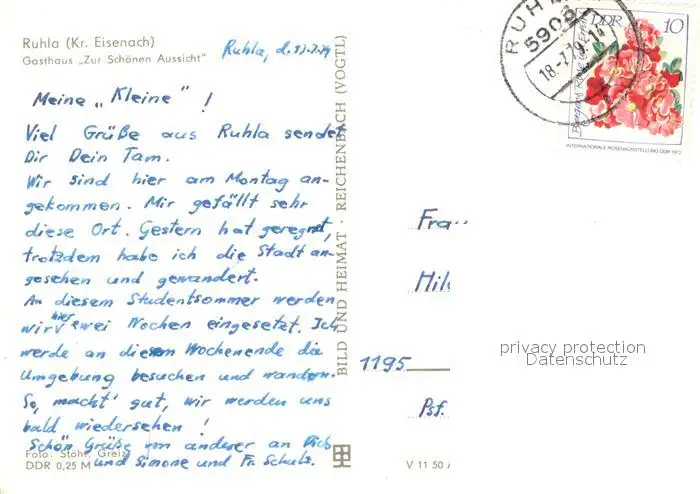 Ruhla (Kr. Eisenach)
Gasthaus „Zur Schönen Aussicht"
Ruhla, d.
Meine „Kleine" !
Viel Grüße aus Ruhla sendet
Dir Dein Tam.
Wir sind hier am Montag an-
gekommen. Mir gefällt sehr
diese Ort. Gestern hat geregnet,
trotzdem habe ich die Stadt an-
gesehen und gewandert.
An diesem Studentsommer werden
wir hier zwei Wochen eingesetzt. Ich
werde an diesem Wochenende die
Umgebung besuchen und wandern.
So, macht' gut, wir werden uns
bald wiedersehen !
Schön Grüße von anderer an Dich
und Simone und Fr. Schulz.
Foto: Stöhr, Greiz
DDR 0,25 M
BILD UND HEIMAT · REICHENBACH (VOGTL)
V 11 50
RUHLA
5906
18.-7.79.-14
DDR 10
INTERNATIONALE ROSENAUSSTELLUNG DDR 1972
Fra
Mil
1195
Psf.
privacy protection
Datenschutz